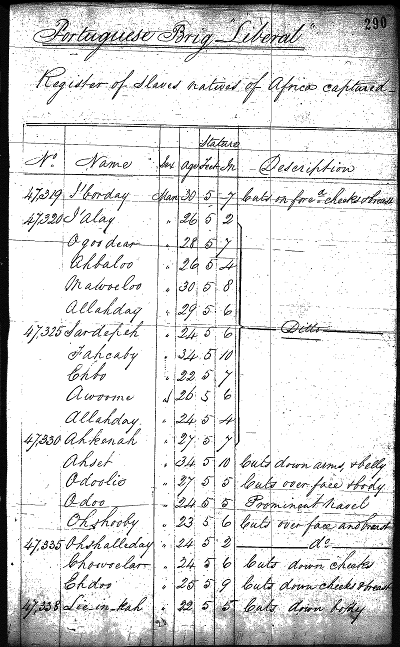 290
Portuguese Brig "Liberal"
Register of Slaves natives of Africa captured
Stature
No. Name Sex Age Feet In Description
47,319 I'borday Man 30 5 7 Cuts on foreᵈ cheeks & breast
47,320 I'Alay " 26 5 2
Ogoodear " 28 5 7
Ahbaloo " 26 5 4
Mawoeloo " 30 5 8
Allahday " 29 5 6
47,325 Sardepeh " 24 5 6 Ditto
Fahcaby " 34 5 10
Ehbo " 22 5 7
Awoome " 26 5 6
Allahday " 24 5 4
47,330 Ahkenah " 27 5 7
Ahset " 34 5 10 Cuts down arms, & belly
Odoolio " 27 5 5 Cuts over face & body
Odoo " 24 5 5 Prominent navel
Ohshooby " 23 5 6 Cuts over face and breast
47,335 Ohshalleday " 24 5 2 do.
Chowoelar " 24 5 6 Cuts down cheeks
Ehdoo " 25 5 9 Cuts down cheeks & breast
47,338 Lee-in-kah " 22 5 5 Cuts down body